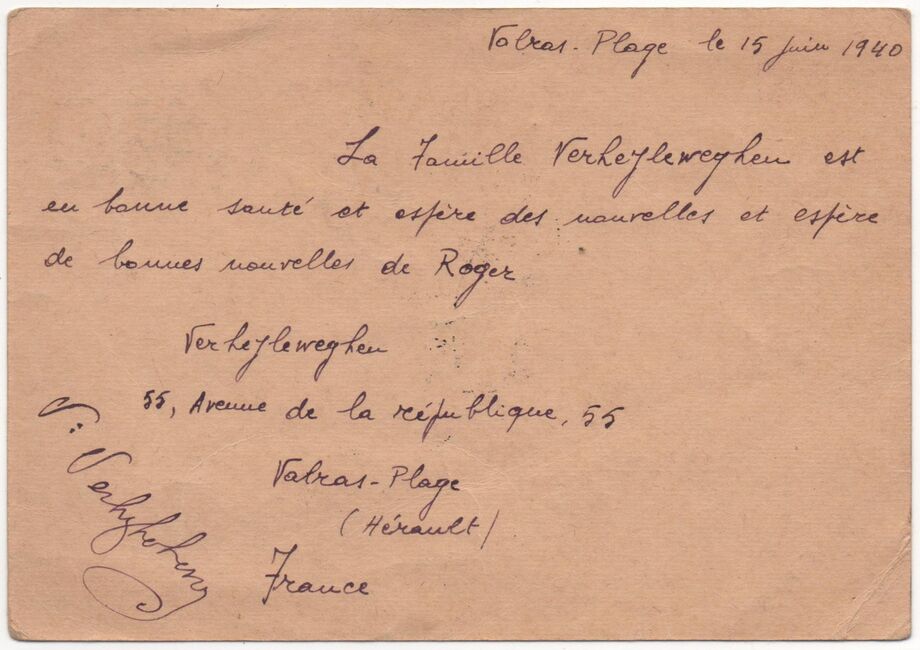 Valras-Plage le 15 juin 1940
La Famille Verheyleweghen est
en bonne santé et espère des nouvelles et espère
de bonnes nouvelles de Roger
Verheyleweghen
55, Avenue de la république, 55
Valras-Plage
(Hérault)
France